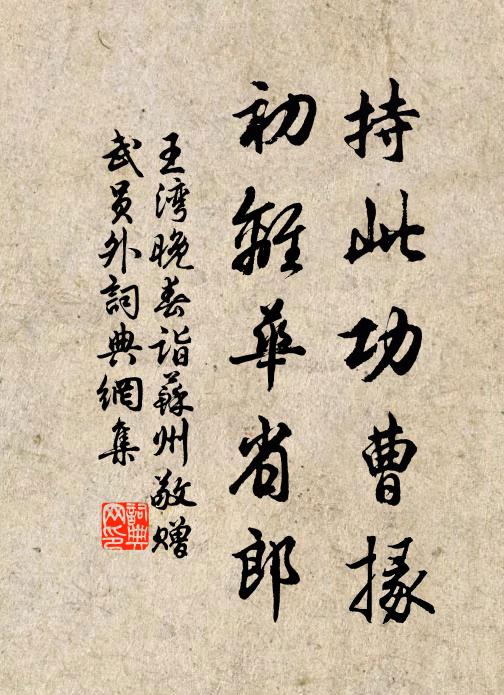 持此功曹掾
初離華省郎
王湾晚春詣蘇州敬赠
武員外詞典網集
詞典
网印